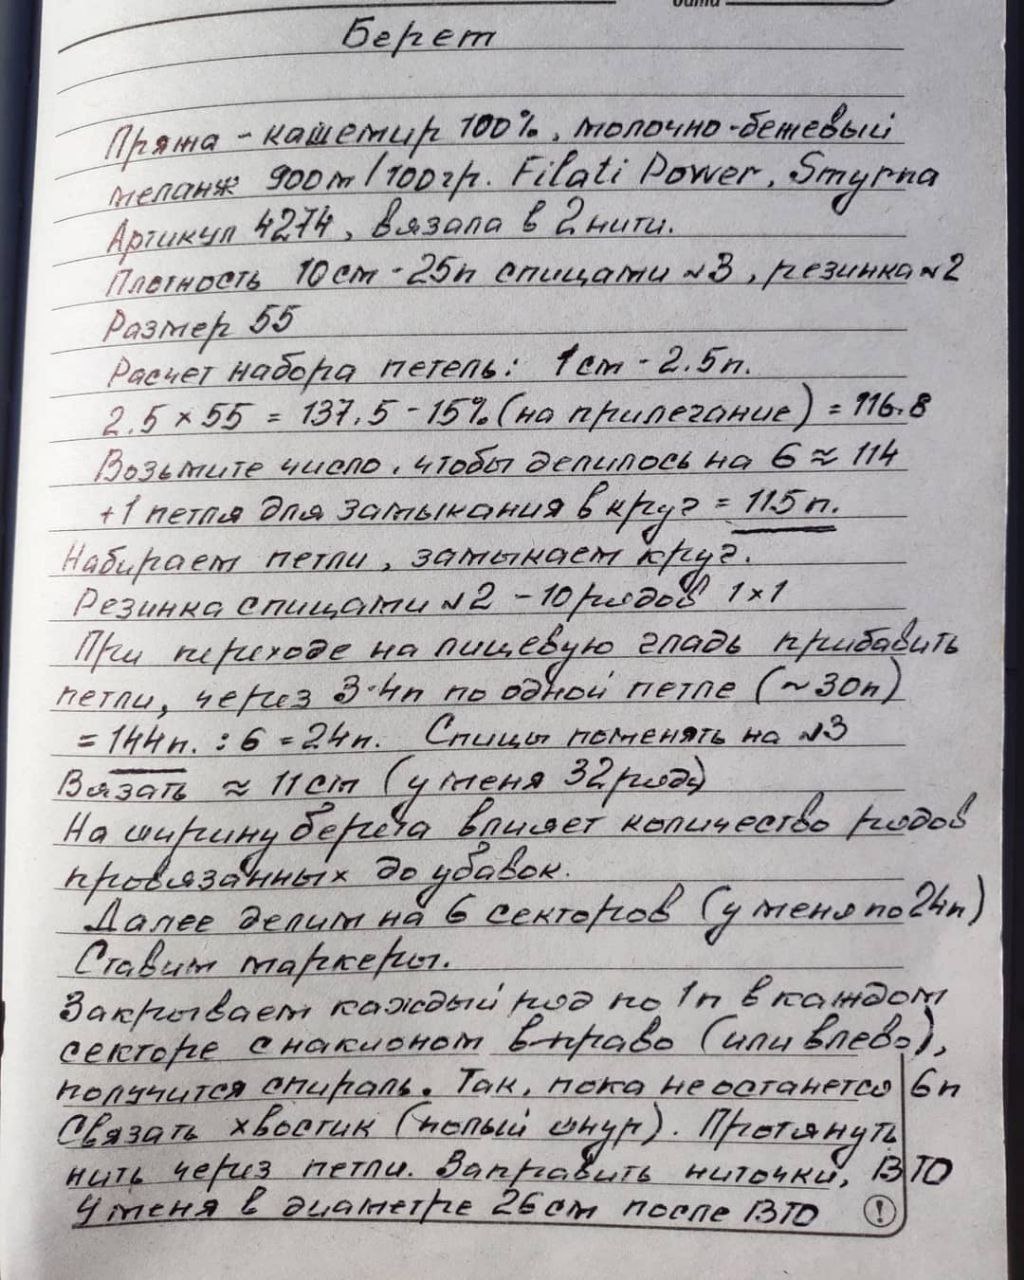 дата
Берет
Пряжа - кашемир 100%, молочно-бежевый
меланж 900м/100гр. Filati Power, Smyrna
Артикул 4274, вязала в 2 нити.
Плотность 10см - 25п спицами №3, резинка №2
Размер 55
Расчет набора петель: 1см - 2.5п.
2.5 × 55 = 137.5 - 15% (на прилегание) = 116.8
Возьмите число, чтобы делилось на 6 ≈ 114
+1 петля для замыкания в круг = 115п.
Набирает петли, замыкает круг.
Резинка спицами №2 - 10 рядов 1×1
При переходе на лицевую гладь прибавить
петли, через 3-4п по одной петле (~30п)
= 144п. : 6 = 24п. Спицы поменять на №3
Вязать ≈ 11см (у меня 32 ряда)
На ширину берета влияет количество рядов
провязанных до убавок.
Далее делим на 6 секторов (у меня по 24п)
Ставим маркеры.
Закрываем каждый ряд по 1п в каждом
секторе с наклоном вправо (или влево),
получится спираль. Так, пока не останется 6п
Связать хвостик (полый шнур). Протянуть
нить через петли. Заправить ниточки, ВТО
У меня в диаметре 26см после ВТО !